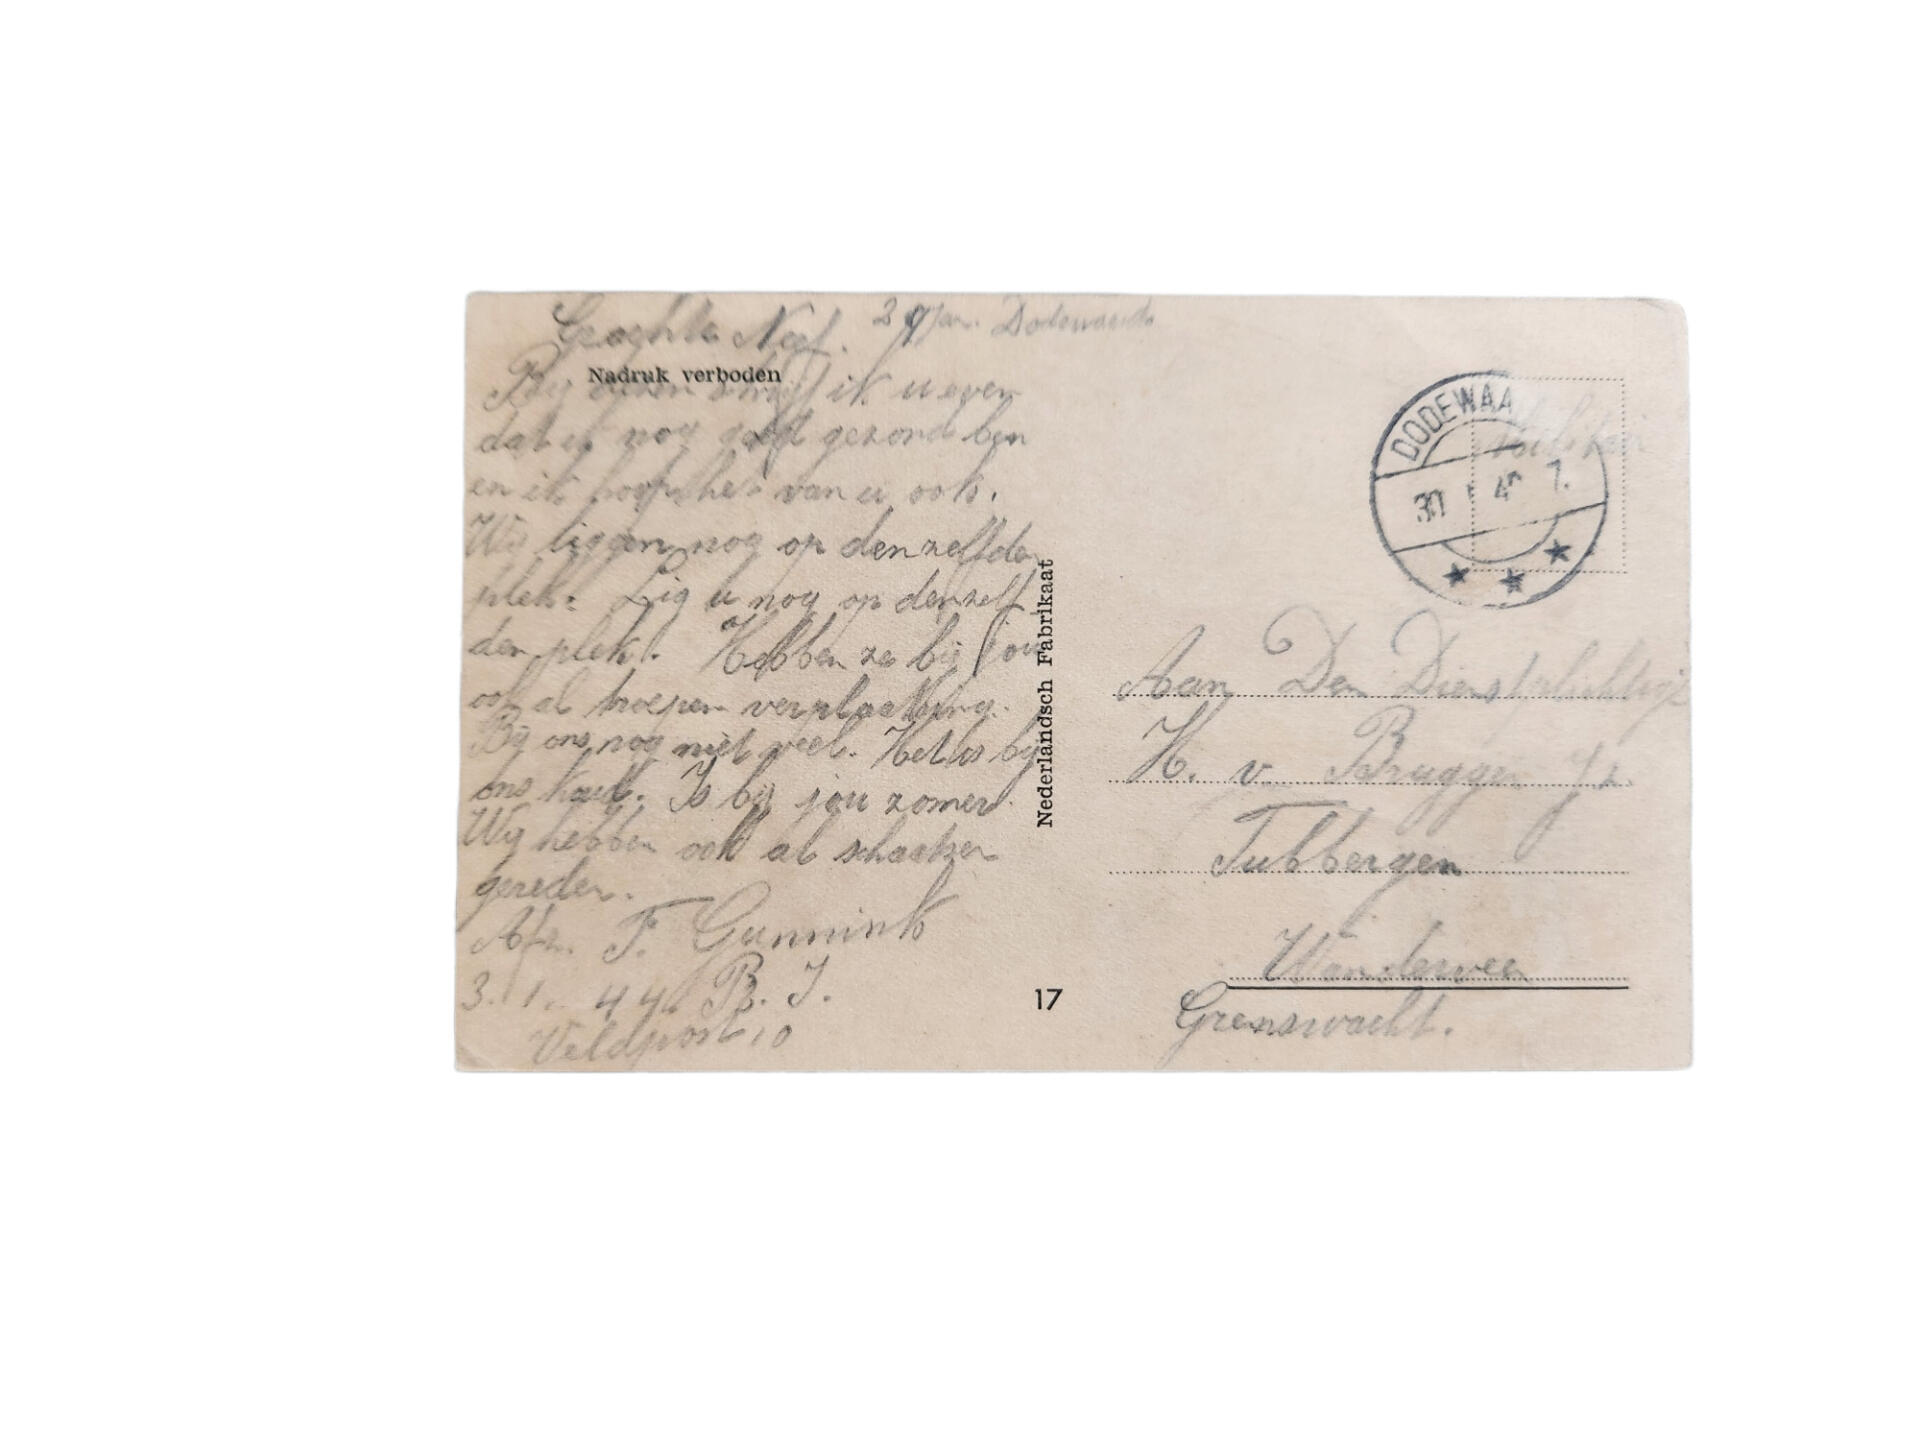 Geachte Neef. 29 Jan. Dodewaard
Nadruk verboden
Bij dezen schrijf ik u even
dat ik nog goed gezond ben
en ik hoop het van u ook.
Wij liggen nog op denzelfden
plek. Lig u nog op denzelf
den plek. Hebben ze bij jou
ook al troepen verplaatsing.
Bij ons nog niet veel. Het is bij
ons koud. Is bij jou zomer.
Wij hebben ook al schaatzen
gereden.
Afz. F. Gunnink
3. 1. 44 R. I.
Veldpost 10
Nederlandsch Fabrikaat
17
DODEWAA
30 1 40 7.
Militair
Aan Den Dienstplichtige
H. v Bruggen
Tubbergen
Grenswacht.